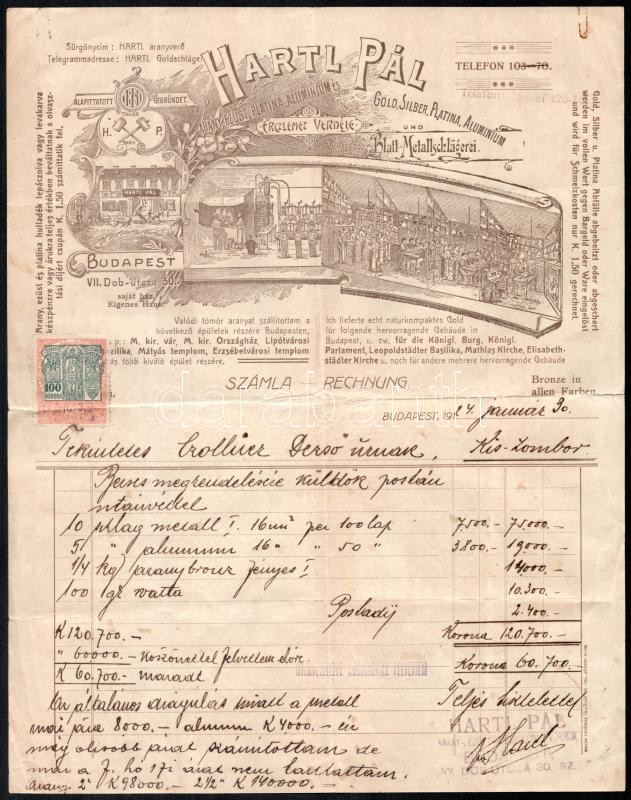 Sürgönyeim: HARTL aranyverő
Telegrammadresse: HARTL Goldschläger
HARTL PÁL
TELEFON 103-70.
ARANY, EZÜST, PLATINA, ALUMINIUM ÉS
GOLD, SILBER, PLATINA, ALUMINIUM
ÉRCZLEMEZ VERDÉJE
UND
Blatt-Metallschlägerei.
ALAPITTATOTT
GEGRÜNDET.
H. P.
HARTL PÁL
BUDAPEST
VII. Dob-utcza
saját ház
Eigenes Haus
Arany, ezüst és platina hulladék lepáczolva vagy levakarva
készpénzre vagy árukra teljes értékben beváltatnak s olvasz-
tási díjért csupán K. 1,50 számíttatik fel.
Gold, Silber u. Platina Abfälle abgebeitzt oder abgeschert
werden im vollen Wert gegen Bargeld oder Ware eingelöst
und wird für Schmelzkosten nur K. 1,50 gerechnet.
Valódi tömör aranyat szállítottam a
következő épületek részére Budapesten,
p.: M. kir. vár, M. kir. Országház, Lipótvárosi
Mátyás templom, Erzsébetvárosi templom
és több kiváló épület részére.
Ich lieferte echt naturkompaktes Gold
für folgende hervorragende Gebäude in
Budapest, u. zw. für die Königl. Burg, Königl.
Parlament, Leopoldstädter Basilika, Mathias Kirche, Elisabeth-
städter Kirche u. noch für andere mehrere hervorragende Gebäude
100
KORONA
SZÁMLA - RECHNUNG
Bronze in
allen Farben.
BUDAPEST, 191 24 január 30.
Tekintetes Dezső úrnak, Kis-Zombor
Becses megrendelésére küldök postán
utánvéttel
10 schlag metall I. 16 per 100 lap 7500.- 75.000.-
5 " aluminum 16 " " 50 " 3800.- 19.000.-
1/4 kg aranybronz fényes I 14000.-
100 gr vatta 10.300.-
Postadíj 2.400.-
K 120.700.- Korona 120.700.-
" 60000.- Köszönettel felvettem előre
K 60.700.- maradt Korona 60.700.-
Az általános drágulás miatt a metall
mai ára 8000.- aluminum K 4000.- én
még olcsóbb árat számítottam de
már a f. hó 17i árat nem tarthattam.
Arany 2" K 98000.- 2 1/2" K 140000.-
Teljes tisztelettel
HARTL PÁL
VII. DOB-UTCZA 30. SZ.